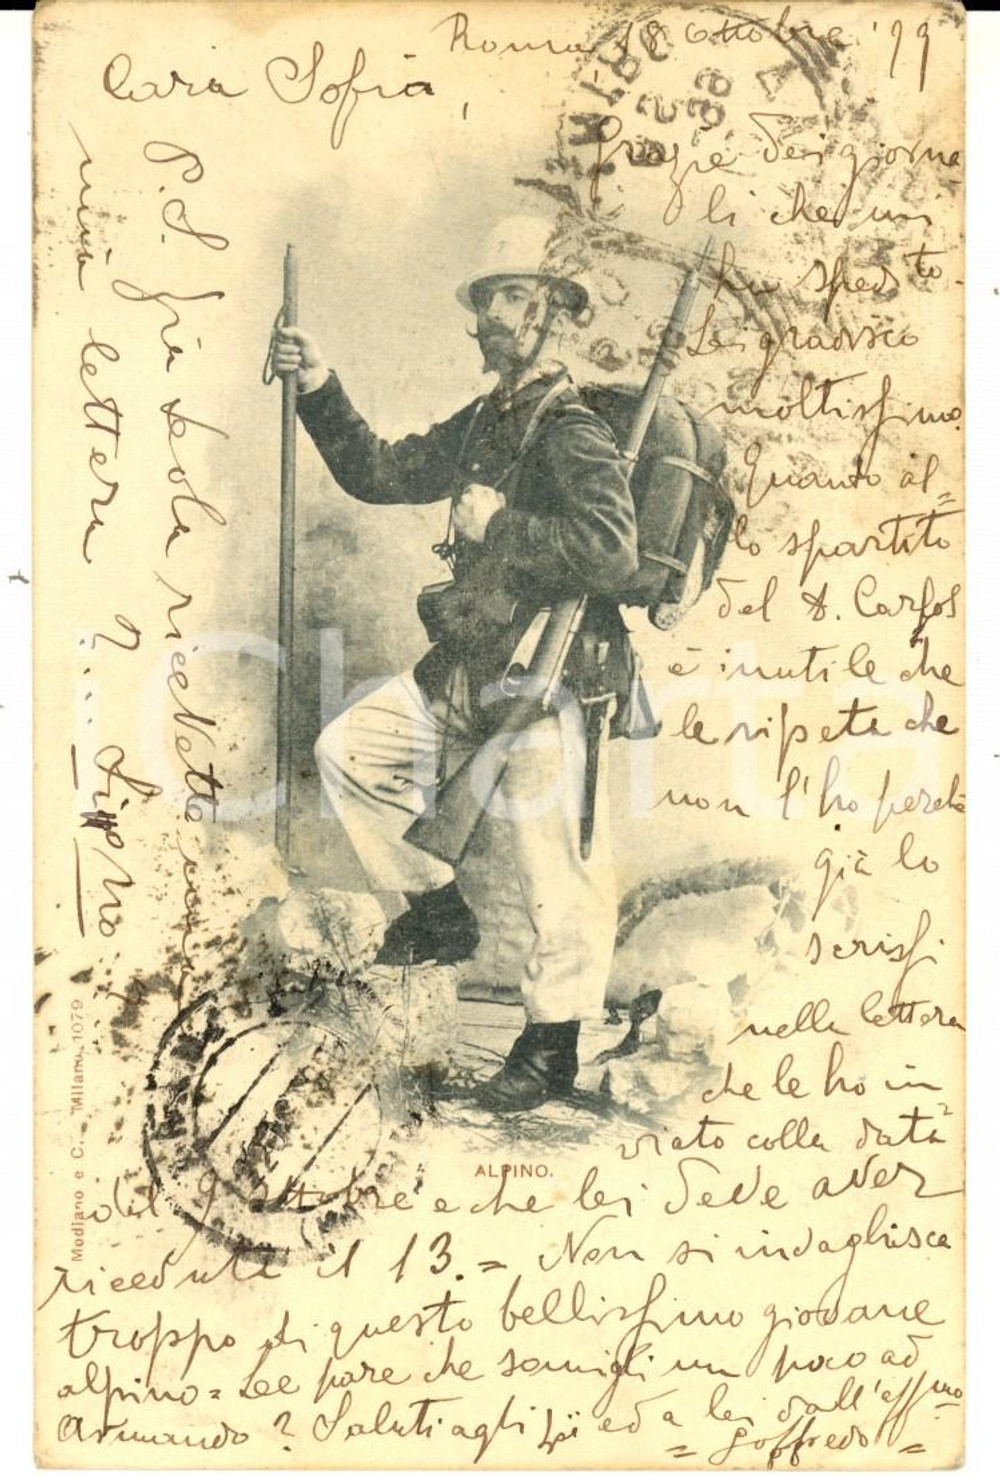 Roma 18 Ottobre '99
Cara Sofia,
Grazie dei giorna
li che mi
ha spedito.
Li gradisco
moltissimo.
Quanto al=
lo spartito
del D. Carlos
è inutile che
le ripeta che
non l'ho perchè
già lo
scrissi
nella lettera
che le ho in
viato colla data
del 9 ottobre e che lei deve aver
ricevuta il 13. = Non si
troppo di questo bellissimo giovane
alpino = Le pare che somigli un poco ad
Armando? Saluti agli zii ed a lei dall'affmo
= Goffredo =
P.S. Già la ricevette una
mia lettera?...
ALPINO.
Modiano e C. - Milano, 1079
iCharta